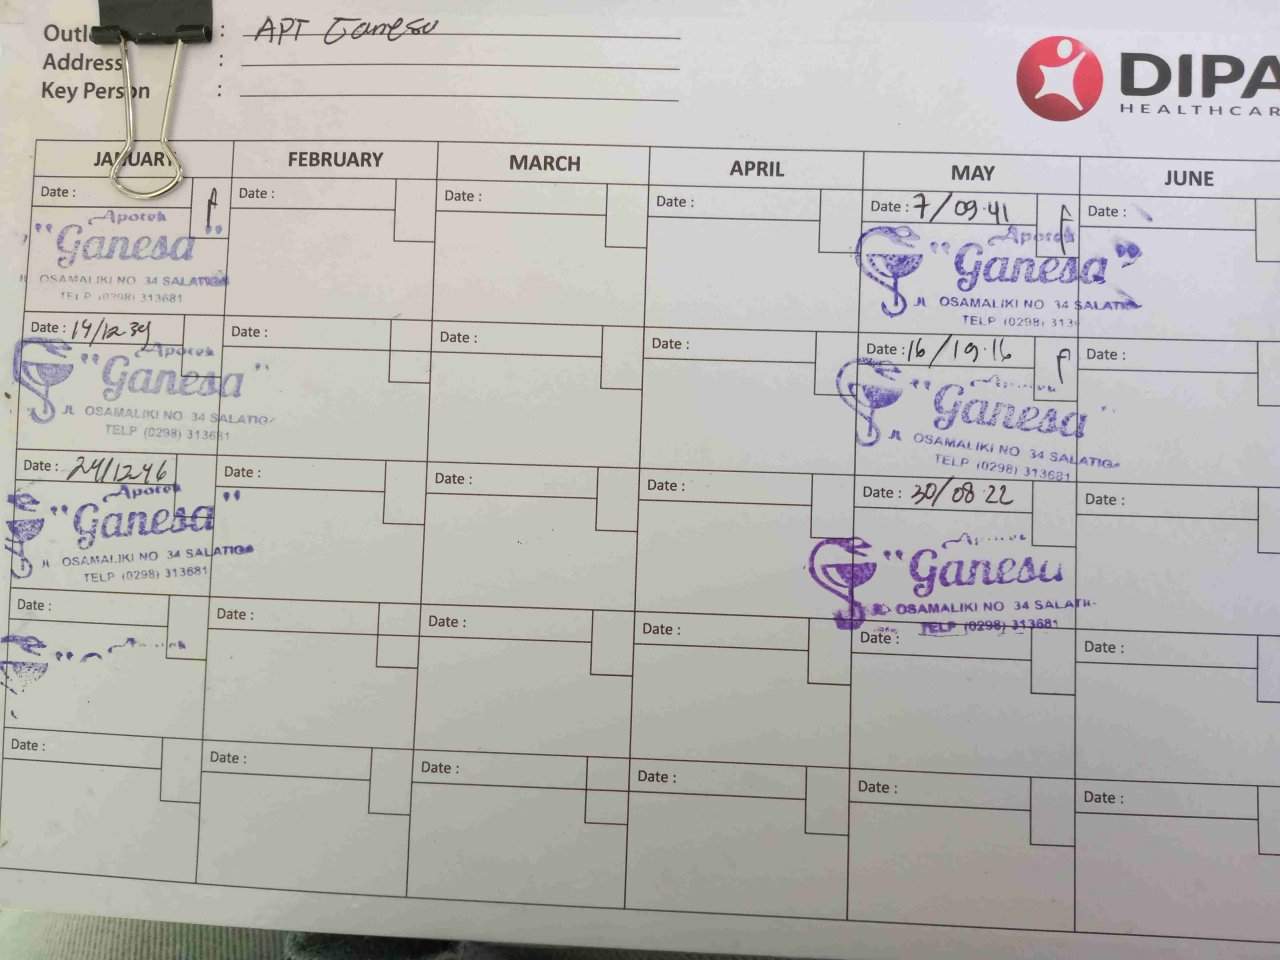 Outl : APT Ganesa
Address :
Key Person :
DIPA
HEALTHCAR
JANUARY FEBRUARY MARCH APRIL MAY JUNE
Date : Date : Date : Date : Date : 7/09.41 Date :
Apotek
"Ganesa"
OSAMALIKI NO 34 SALATIGA
TELP (0298) 313681
Apotek
"Ganesa"
Jl OSAMALIKI NO 34 SALATI
TELP (0298) 313
Date : 14/12 39 Date : Date : Date : Date : 16/19.16 Date :
Apotek
"Ganesa"
JL OSAMALIKI NO 34 SALATIG
TELP (0298) 313681
"Ganesa
JL OSAMALIKI NO 34 SALATIGA
TELP (0298) 313681
Date : 24/12.46 Date : Date : Date : Date : 30/08.22 Date :
Apotek
"Ganesa"
Jl OSAMALIKI NO 34 SALATIGA
TELP (0298) 313681
"Ganesa
OSAMALIKI NO 34 SALATI
TELP (0298) 313681
Date : Date : Date : Date : Date : Date :
Date : Date : Date : Date : Date : Date :